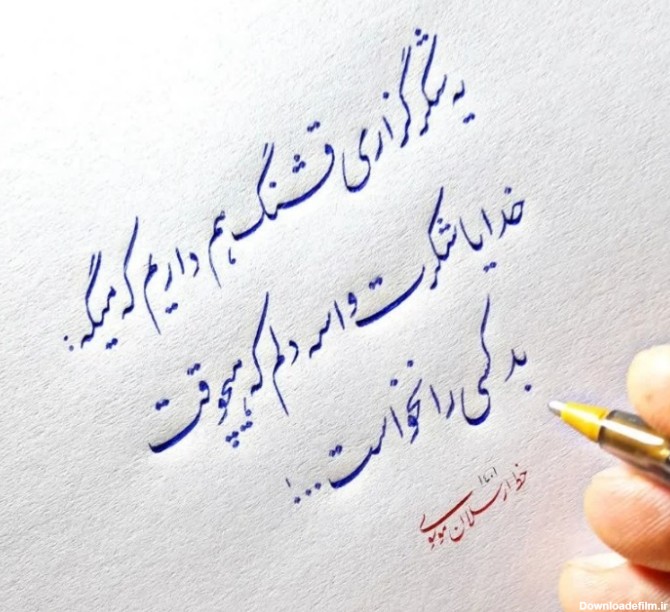 یه شکرگزاری قشنگ هم داریم که میگه:
خدایا شکرت واسه دلم که هیچوقت
بد کسی را نخواست...!
خط ارسلان موسوی
Downloadefilm.ir